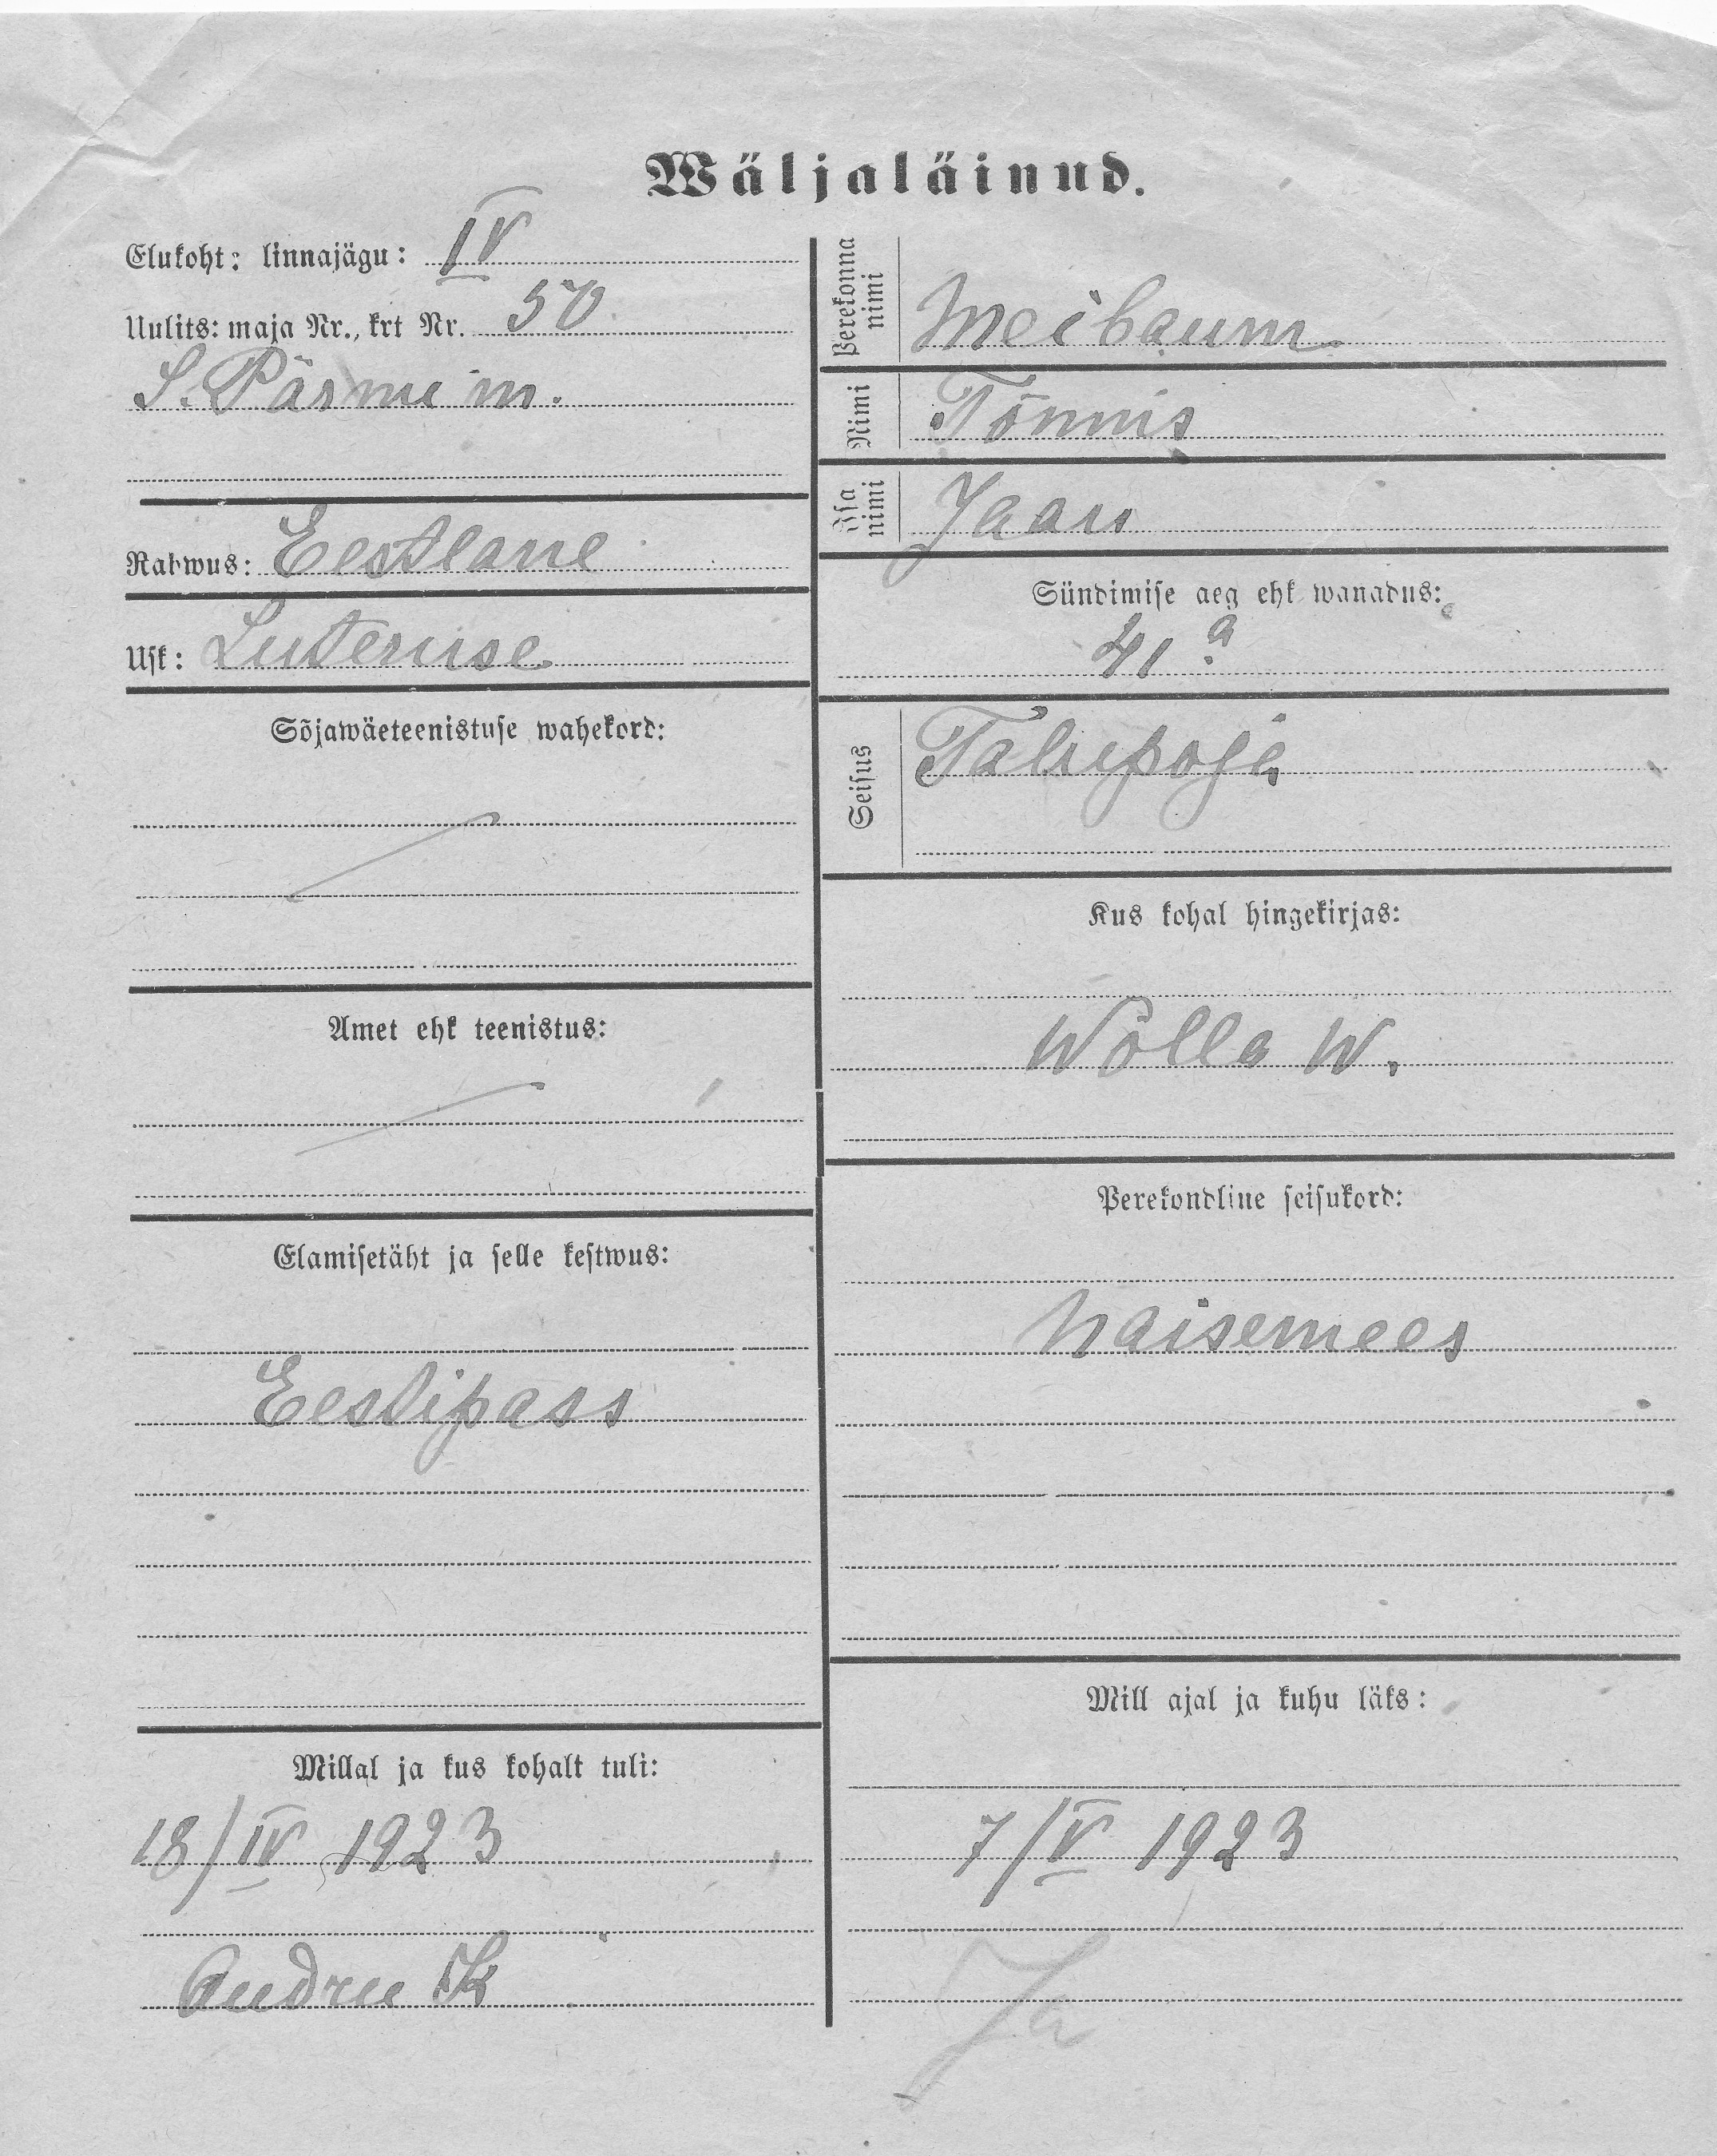 Wäljaläinud.
Elukoht: linnajägu: IV
Uulits: maja Nr., krt Nr. 50
S. Pärnu m.
Rahwus: Eestlane
Usk: Luteruse
Sõjawäeteenistuse wahekord:
Amet ehk teenistus:
Elamisetäht ja selle kestwus:
Eestipass
Millal ja kus kohalt tuli:
18/IV 1923
Audru
Perekonna nimi
Meibaum
Nimi
Tõnnis
Isa nimi
Jaan
Sündimise aeg ehk wanadus:
41 a.
Seisus
Talupoja
Kus kohal hingekirjas:
Wõlla W.
Perekondline seisukord:
Naisemees
Mill ajal ja kuhu läks:
7/V 1923